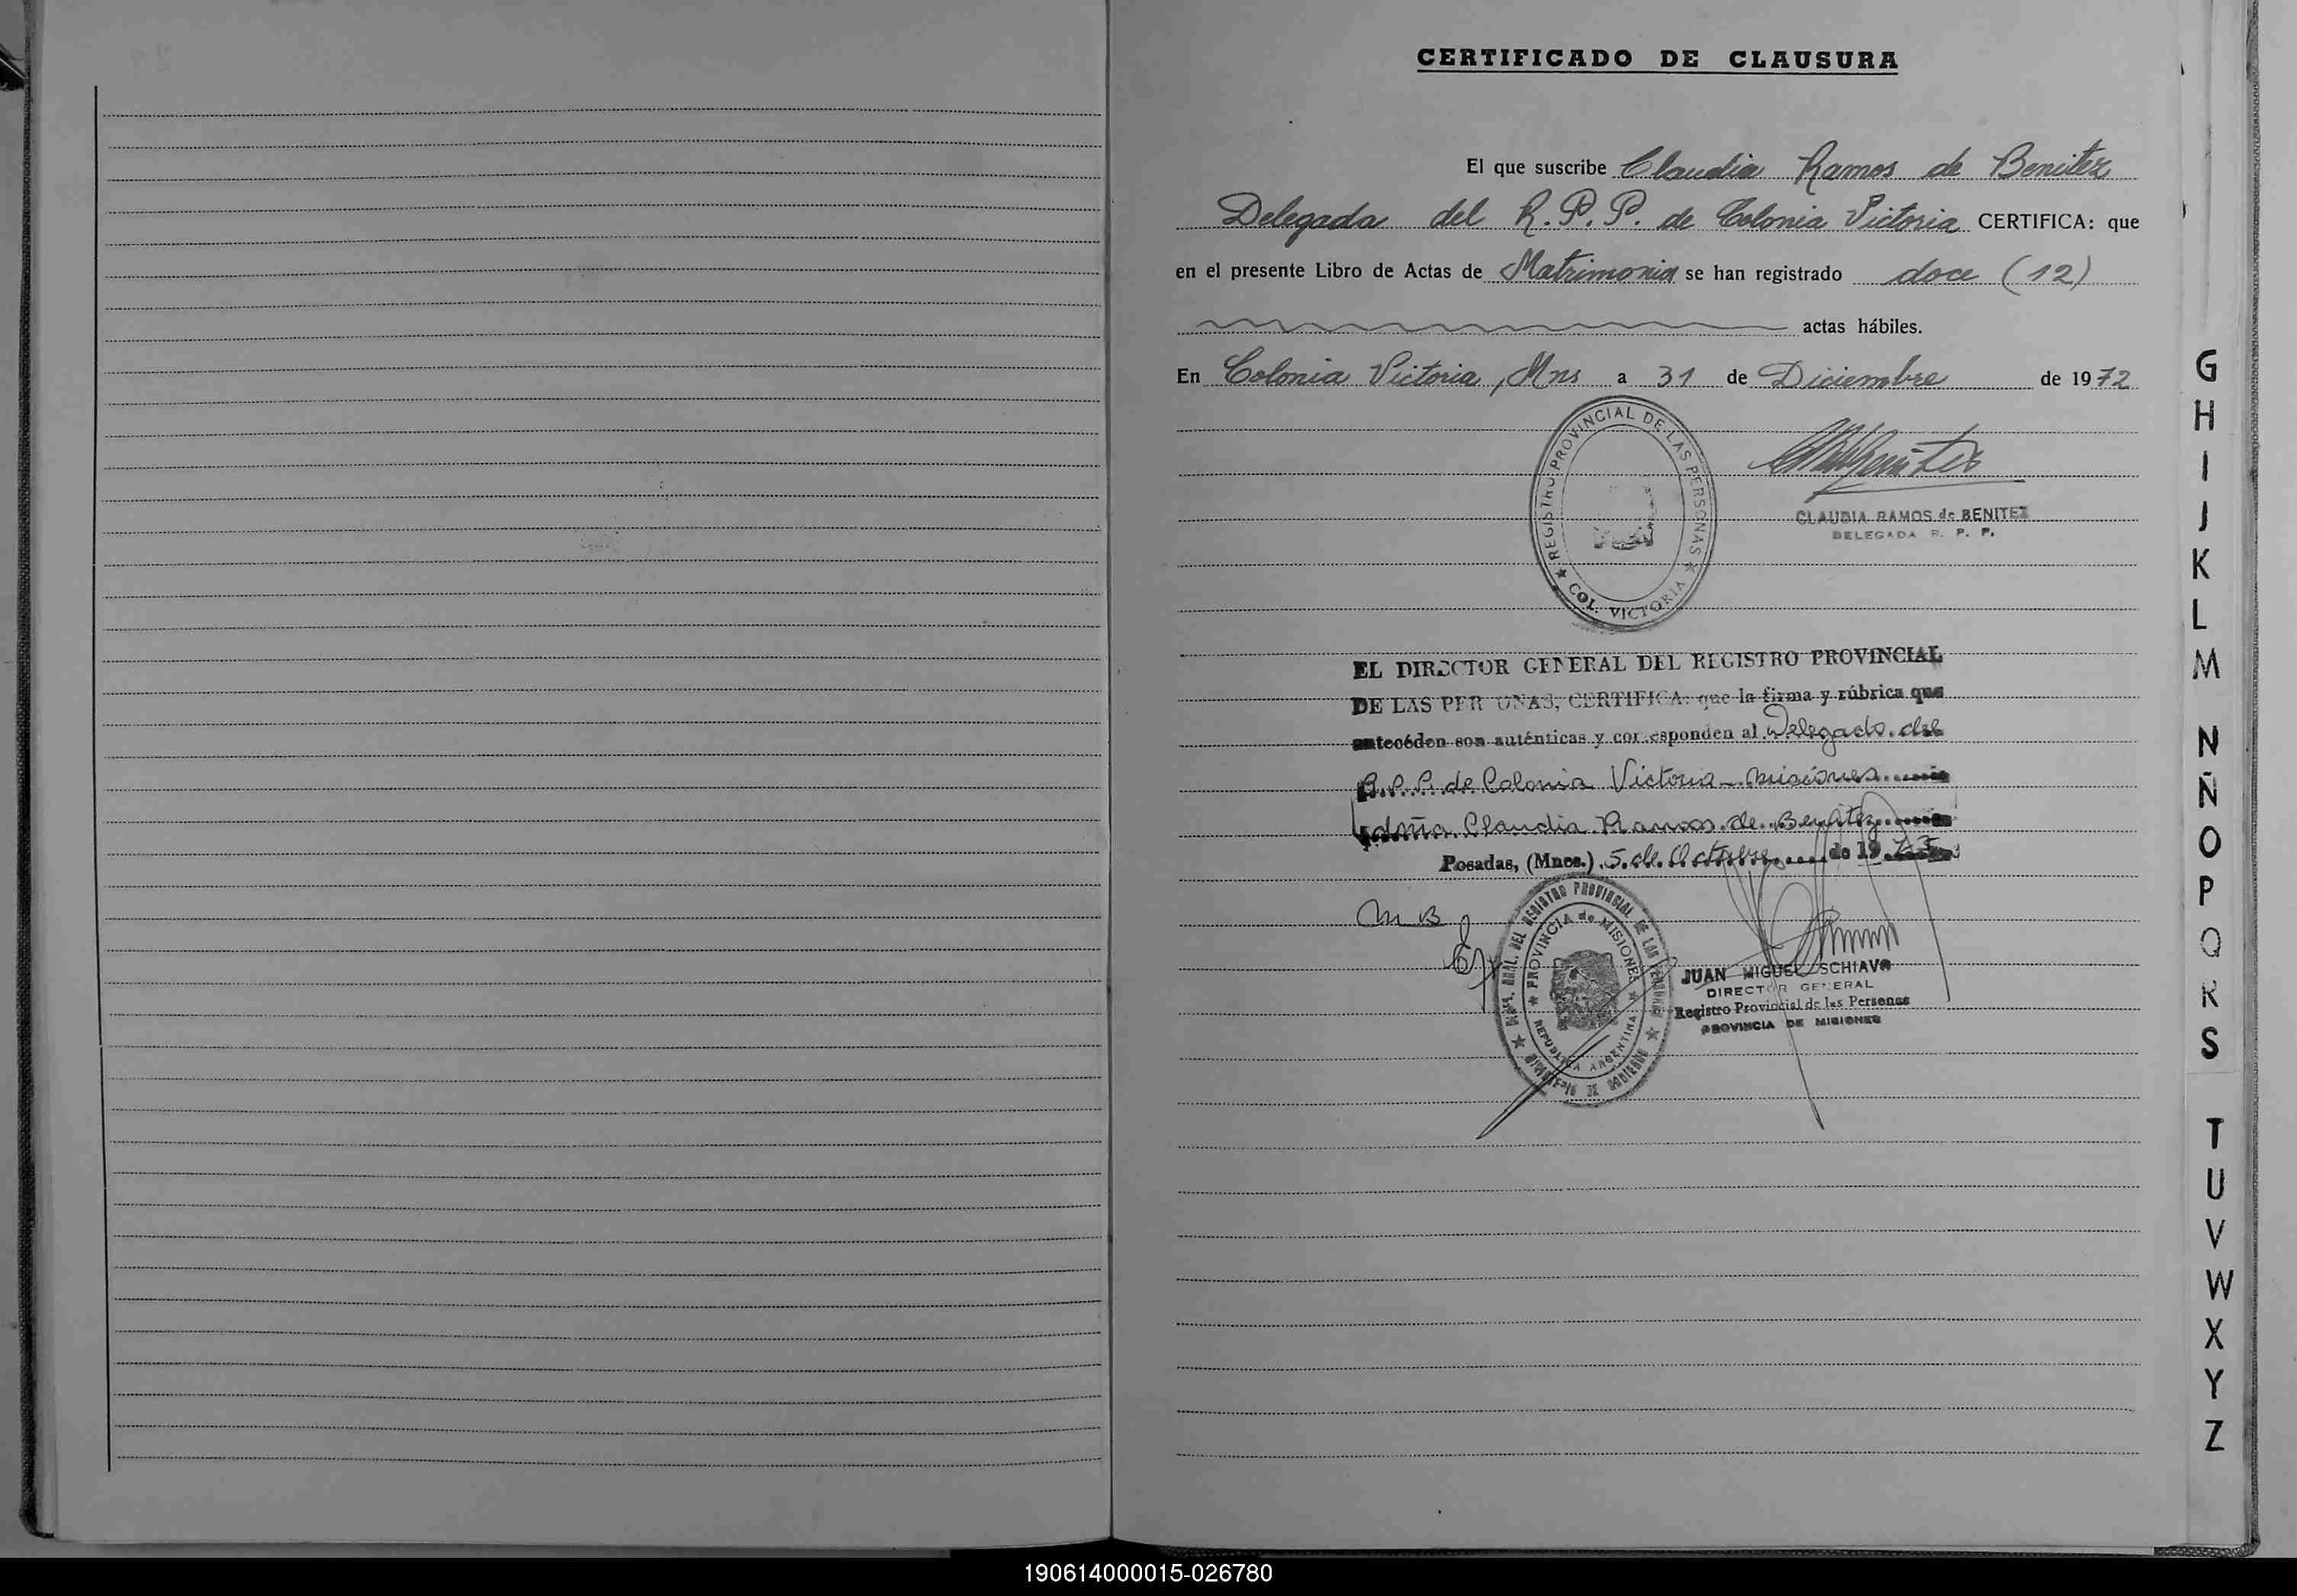 CERTIFICADO DE CLAUSURA
El que suscribe Claudia Ramos de Benitez
Delegada del R. P. P. de Colonia Victoria CERTIFICA: que
en el presente Libro de Actas de Matrimonios se han registrado doce (12)
actas hábiles.
En Colonia Victoria, Mns a 31 de Diciembre de 1972
REGISTRO PROVINCIAL DE LAS PERSONAS
COL. VICTORIA
CLAUDIA RAMOS de BENITEZ
DELEGADA R. P. P.
EL DIRECTOR GENERAL DEL REGISTRO PROVINCIAL
DE LAS PERSONAS, CERTIFICA: que la firma y rúbrica que
anteceden son auténticas y corresponden al Delegado del
R. P. P. de Colonia Victoria - Misiones
doña Claudia Ramos de Benítez
Posadas, (Mnes.) 5 de Octubre de 19 73
M B
DIREC. GRAL. DEL REGISTRO PROVINCIAL DE LAS PERSONAS
MINISTERIO DE GOBIERNO
PROVINCIA de MISIONES
REPUBLICA ARGENTINA
JUAN MIGUEL SCHIAVO
DIRECTOR GENERAL
Registro Provincial de las Personas
PROVINCIA DE MISIONES
G
H
I
J
K
L
M
N
Ñ
O
P
Q
R
S
T
U
V
W
X
Y
Z
190614000015-026780